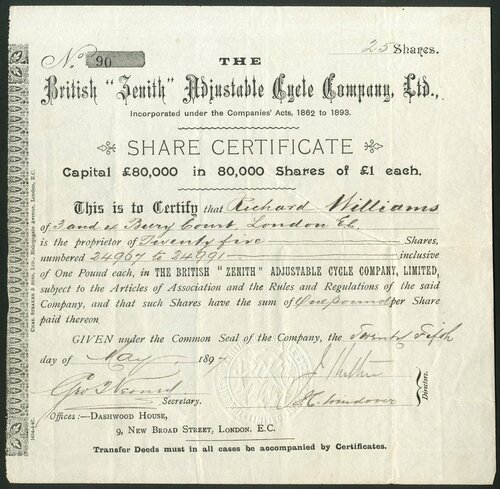 No. 90
25 Shares.
THE
British "Zenith" Adjustable Cycle Company, Ltd.,
Incorporated under the Companies' Acts, 1862 to 1893.
SHARE CERTIFICATE
Capital £80,000 in 80,000 Shares of £1 each.
This is to Certify that Richard Williams
of 3 and 4 Bury Court, London E.C.
is the proprietor of Twenty five Shares,
numbered 24967 to 24991 inclusive
of One Pound each, in THE BRITISH "ZENITH" ADJUSTABLE CYCLE COMPANY, LIMITED,
subject to the Articles of Association and the Rules and Regulations of the said
Company, and that such Shares have the sum of One pound per Share
paid thereon.
GIVEN under the Common Seal of the Company, the Twenty Fifth
day of May 1897
Secretary.
Directors.
Offices:—DASHWOOD HOUSE,
9, NEW BROAD STREET, LONDON. E.C.
Transfer Deeds must in all cases be accompanied by Certificates.
Bishopsgate Avenue, London, E.C.